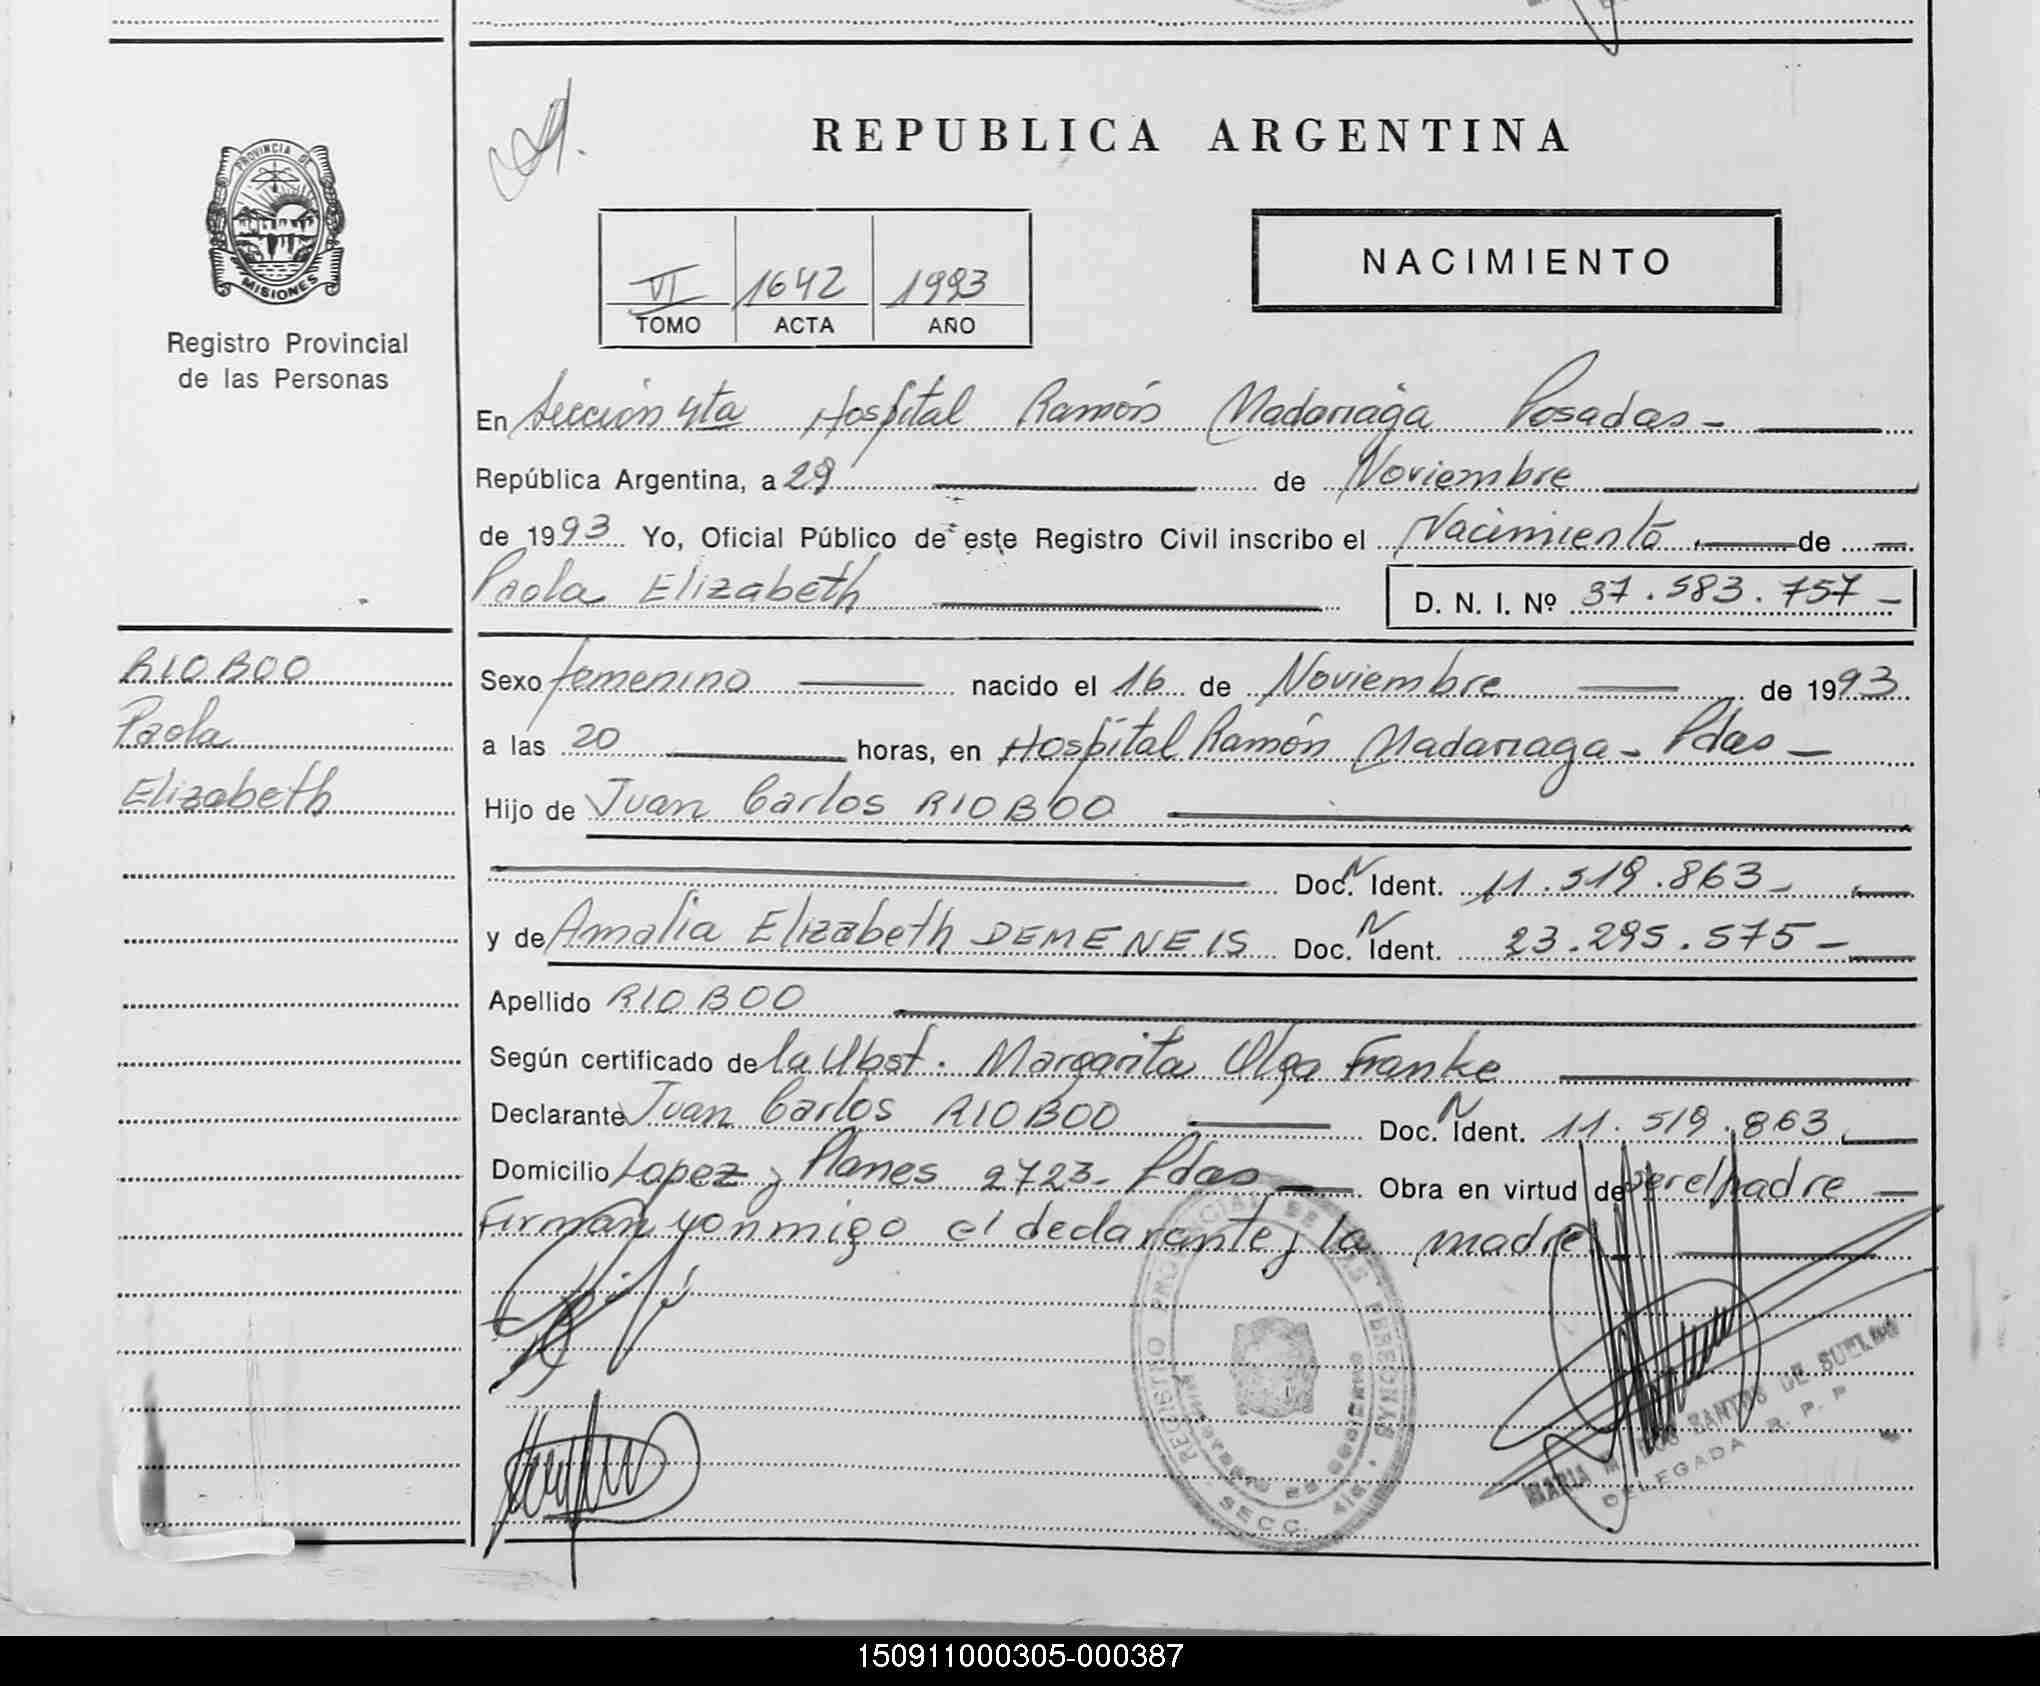 REPUBLICA ARGENTINA
PROVINCIA DE
MISIONES
Registro Provincial
de las Personas
NACIMIENTO
VI 1642 1993
TOMO ACTA AÑO
En Sección 4ta Hospital Ramón Madariaga Posadas -
República Argentina, a 29 de Noviembre
de 1993 Yo, Oficial Público de este Registro Civil inscribo el Nacimiento de
Paola Elizabeth D. N. I. Nº 37.583.757 -
RIOBOO
Paola
Elizabeth
Sexo femenino nacido el 16 de Noviembre de 1993
a las 20 horas, en Hospital Ramón Madariaga - Pdas -
Hijo de Juan Carlos RIOBOO
Doc. N Ident. 11.519.863 -
y de Amalia Elizabeth DEMENEIS Doc. N Ident. 23.295.575 -
Apellido RIOBOO
Según certificado de la Obst. Margarita Olga Franke
Declarante Juan Carlos RIOBOO Doc. N Ident. 11.519.863
Domicilio Lopez y Planes 2723 - Pdas Obra en virtud de ser el padre
Firman conmigo el declarante y la madre
REGISTRO PROVINCIAL DE LAS PERSONAS
SECC. 4ta.
MARIA M. DOS SANTOS DE
DELEGADA R. P. P.
150911000305-000387